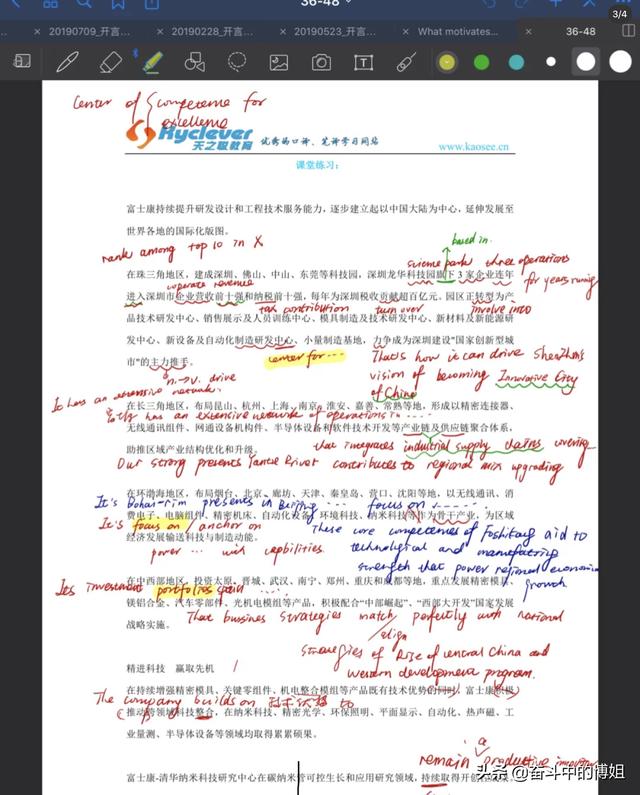 36-48
3/4
20190709_开言...
20190228_开言...
20190523_开言...
What motivates...
36-48
Center of competence for
excellence
Hyclever
天之聪教育
优秀的口译、笔译学习网站
www.kaosee.cn
课堂练习：
富士康持续提升研发设计和工程技术服务能力，逐步建立起以中国大陆为中心，延伸发展至
世界各地的国际化版图。
based in
rank among top 10 in X
science park three operations
在珠三角地区，建成深圳、佛山、中山、东莞等科技园，深圳龙华科技园旗下3家企业连年
for years running
coperate revenue
进入深圳市企业营收前十强和纳税前十强，每年为深圳税收贡献超百亿元。园区正转型为产
tax contribution turn over involve into
品技术研发中心、销售展示及人员训练中心、模具制造及技术研发中心、新材料及新能源研
发中心、新设备及自动化制造研发中心、小量制造基地，力争成为深圳建设“国家创新型城
市”的主力推手。
center for ...
That's how it can drive Shenzhen's
n.→v. drive
vision of becoming Innovative City
of China
It has an extensive network
在长三角地区，布局昆山、杭州、上海、南京、淮安、嘉善、常熟等地，形成以精密连接器、
has an extensive network of operations in ...
无线通讯组件、网通设备机构件、半导体设备和软件技术开发等产业链及供应链聚合体系，
that integrates industrial supply chains covering
助推区域产业结构优化和升级。
Our strong presents Yantze River contributes to regional mix upgrading
在环渤海地区，布局烟台、北京、廊坊、天津、秦皇岛、营口、沈阳等地，以无线通讯、消
It's bohai-rim presents in Beijing ... focus on ......
费电子、电脑组件、精密机床、自动化设备、环境科技、纳米科技等作为骨干产业，为区域
It's focus on / anchor on
These core competences of Foshikang aid to
经济发展输送科技与制造动能。
power ... with capbilities
technological and manufatring
strength that power regional economic
growth.
在中西部地区，投资太原、晋城、武汉、南宁、郑州、重庆和成都等地，重点发展精密模具、
Its investment portfolios span ....
镁铝合金、汽车零部件、光机电模组等产品，积极配合“中部崛起”、“西部大开发”国家发展
That bussines strategies match perfectly with national
战略实施。
align
strategies of Rise of central China and
western development program.
精进科技 赢取先机
在持续增强精密模具、关键零组件、机电整合模组等产品既有技术优势的同时，富士康积极
The company builds on
推动跨领域科技整合，在纳米科技、精密光学、环保照明、平面显示、自动化、热声磁、工
业量测、半导体设备等领域均取得累累硕果。
remain a productive
富士康-清华纳米科技研究中心在碳纳米管可控生长和应用研究领域，持续取得开创
头条@奋斗中的博姐